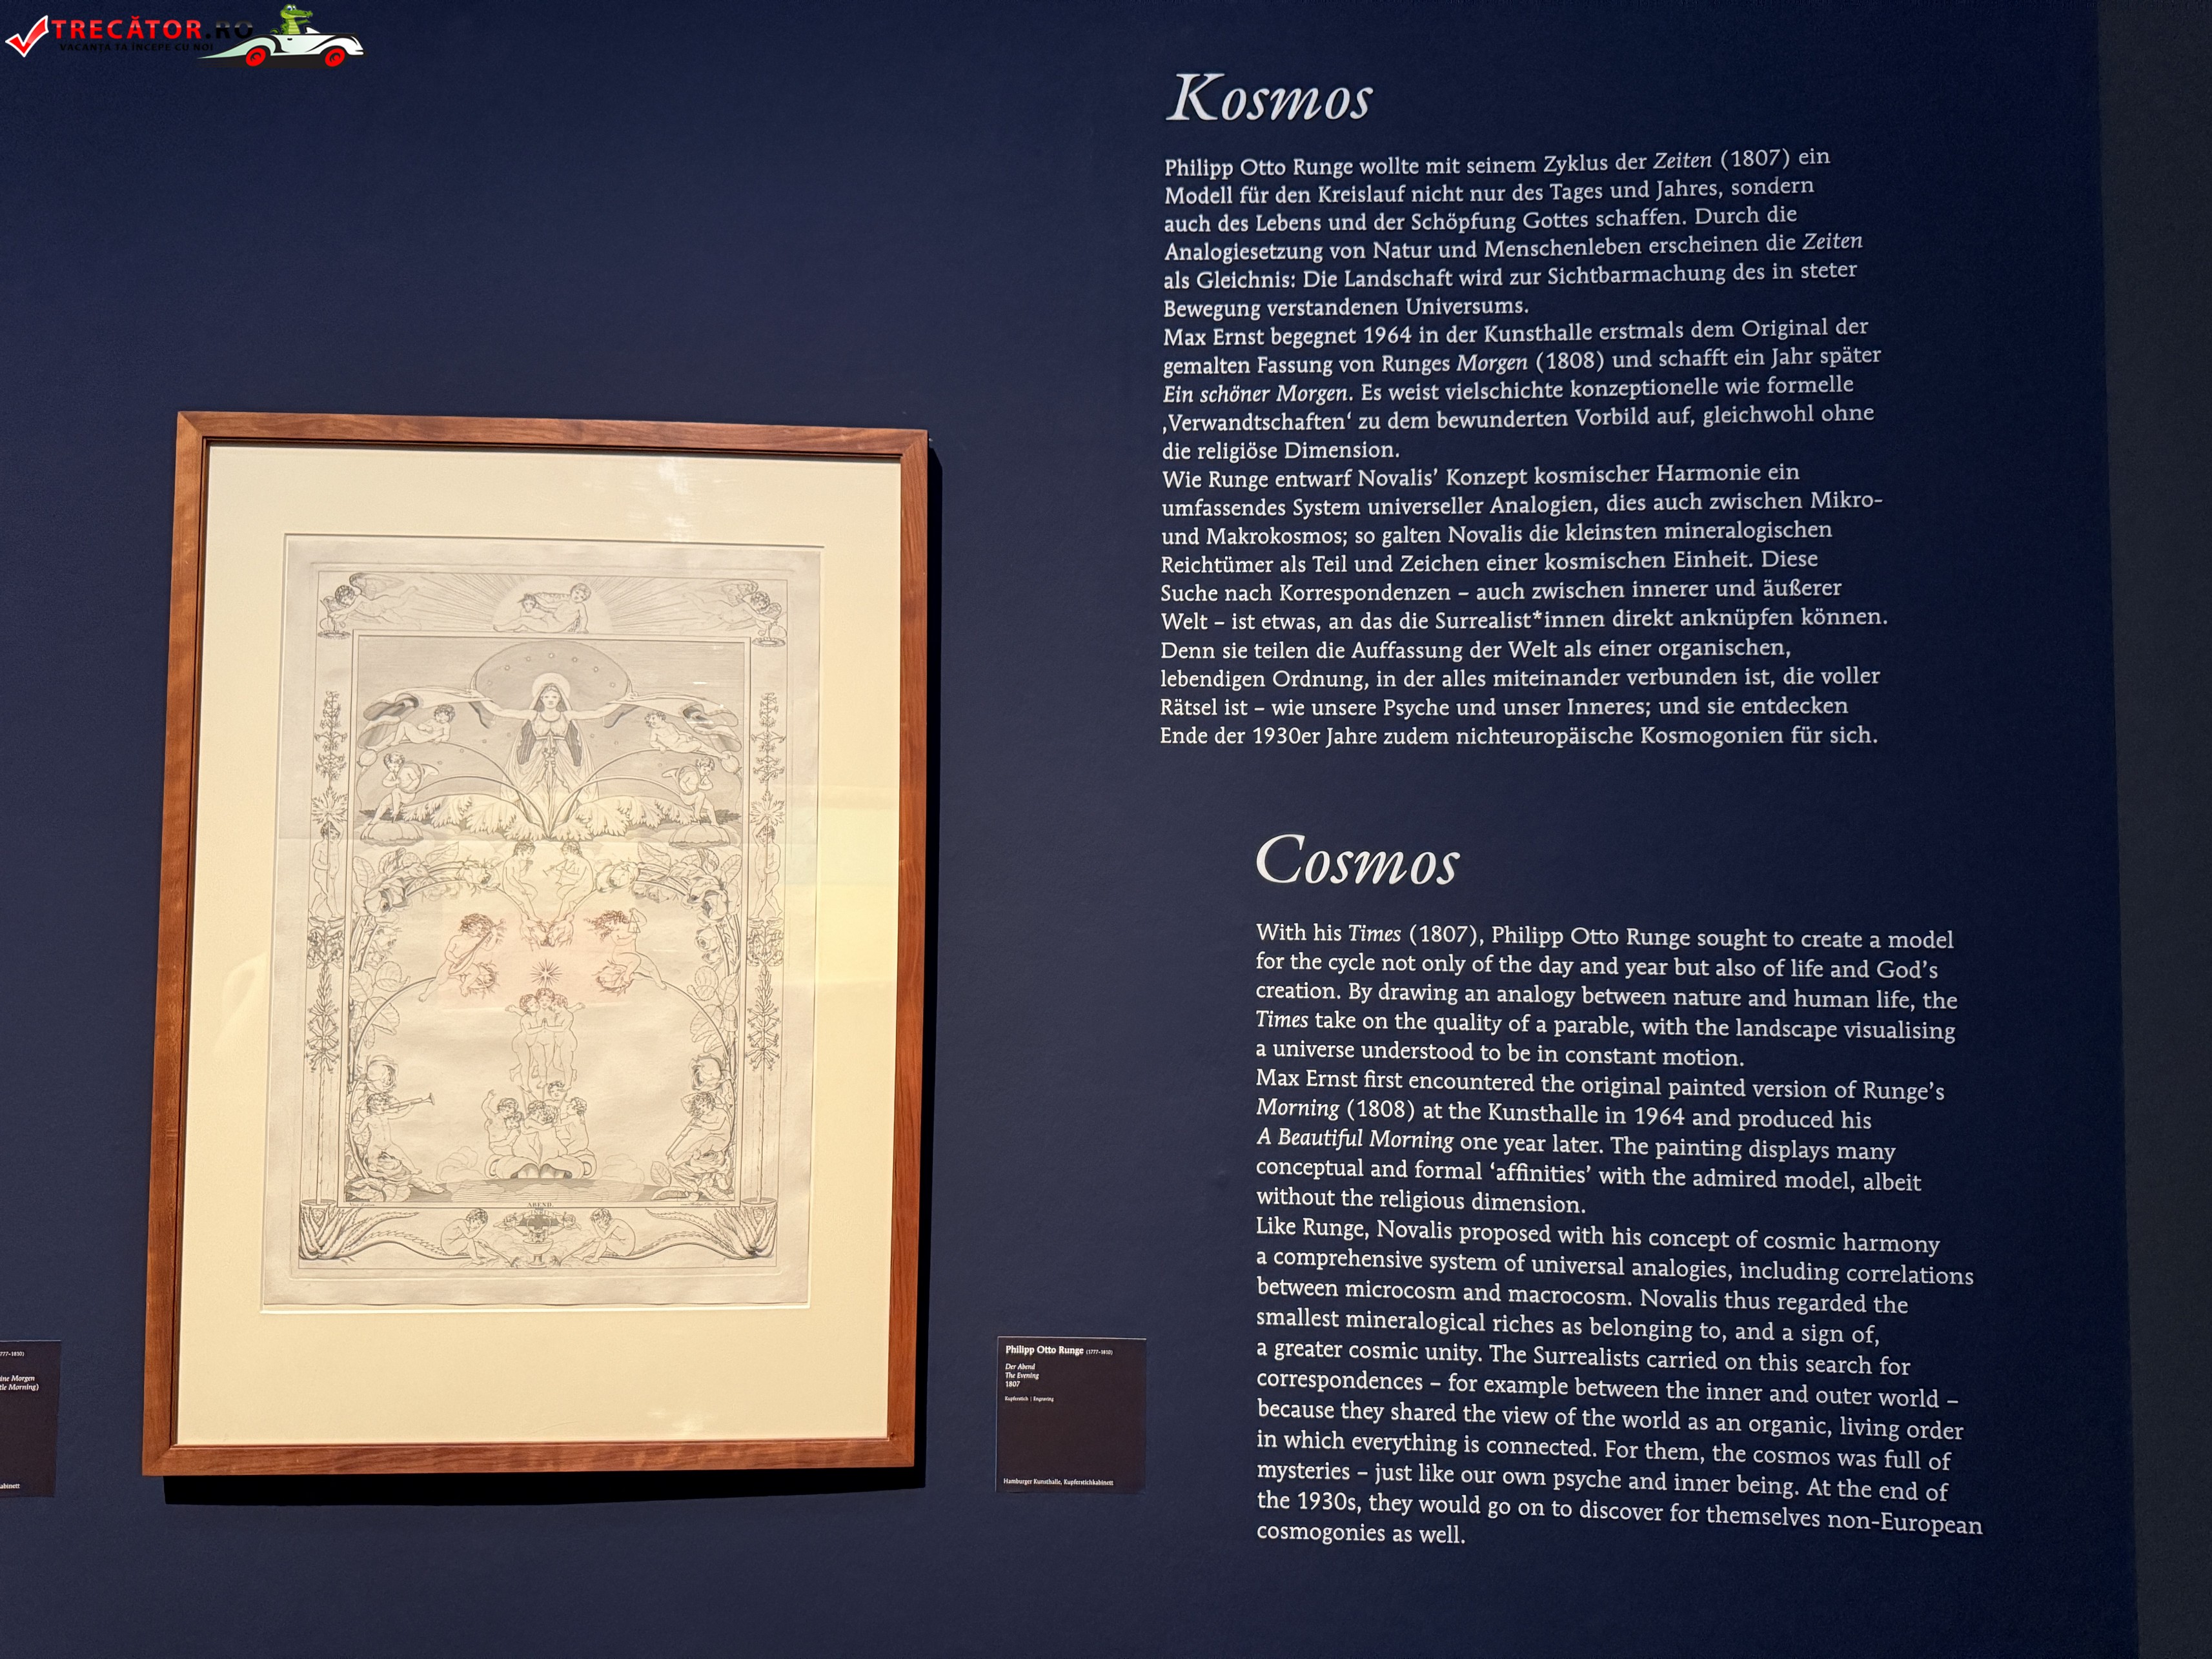 TRECĂTOR.RO
VACANȚA TA ÎNCEPE CU NOI
Kosmos
Philipp Otto Runge wollte mit seinem Zyklus der Zeiten (1807) ein
Modell für den Kreislauf nicht nur des Tages und Jahres, sondern
auch des Lebens und der Schöpfung Gottes schaffen. Durch die
Analogiesetzung von Natur und Menschenleben erscheinen die Zeiten
als Gleichnis: Die Landschaft wird zur Sichtbarmachung des in steter
Bewegung verstandenen Universums.
Max Ernst begegnet 1964 in der Kunsthalle erstmals dem Original der
gemalten Fassung von Runges Morgen (1808) und schafft ein Jahr später
Ein schöner Morgen. Es weist vielschichte konzeptionelle wie formelle
‚Verwandtschaften‘ zu dem bewunderten Vorbild auf, gleichwohl ohne
die religiöse Dimension.
Wie Runge entwarf Novalis’ Konzept kosmischer Harmonie ein
umfassendes System universeller Analogien, dies auch zwischen Mikro-
und Makrokosmos; so galten Novalis die kleinsten mineralogischen
Reichtümer als Teil und Zeichen einer kosmischen Einheit. Diese
Suche nach Korrespondenzen – auch zwischen innerer und äußerer
Welt – ist etwas, an das die Surrealist*innen direkt anknüpfen können.
Denn sie teilen die Auffassung der Welt als einer organischen,
lebendigen Ordnung, in der alles miteinander verbunden ist, die voller
Rätsel ist – wie unsere Psyche und unser Inneres; und sie entdecken
Ende der 1930er Jahre zudem nichteuropäische Kosmogonien für sich.
Cosmos
With his Times (1807), Philipp Otto Runge sought to create a model
for the cycle not only of the day and year but also of life and God’s
creation. By drawing an analogy between nature and human life, the
Times take on the quality of a parable, with the landscape visualising
a universe understood to be in constant motion.
Max Ernst first encountered the original painted version of Runge’s
Morning (1808) at the Kunsthalle in 1964 and produced his
A Beautiful Morning one year later. The painting displays many
conceptual and formal ‘affinities’ with the admired model, albeit
without the religious dimension.
Like Runge, Novalis proposed with his concept of cosmic harmony
a comprehensive system of universal analogies, including correlations
between microcosm and macrocosm. Novalis thus regarded the
smallest mineralogical riches as belonging to, and a sign of,
a greater cosmic unity. The Surrealists carried on this search for
correspondences – for example between the inner and outer world –
because they shared the view of the world as an organic, living order
in which everything is connected. For them, the cosmos was full of
mysteries – just like our own psyche and inner being. At the end of
the 1930s, they would go on to discover for themselves non-European
cosmogonies as well.
ABEND.
Philipp Otto Runge (1777–1810)
Der Abend
The Evening
1807
Kupferstich | Engraving
Hamburger Kunsthalle, Kupferstichkabinett
777–1810)
ine Morgen
tle Morning)
abinett